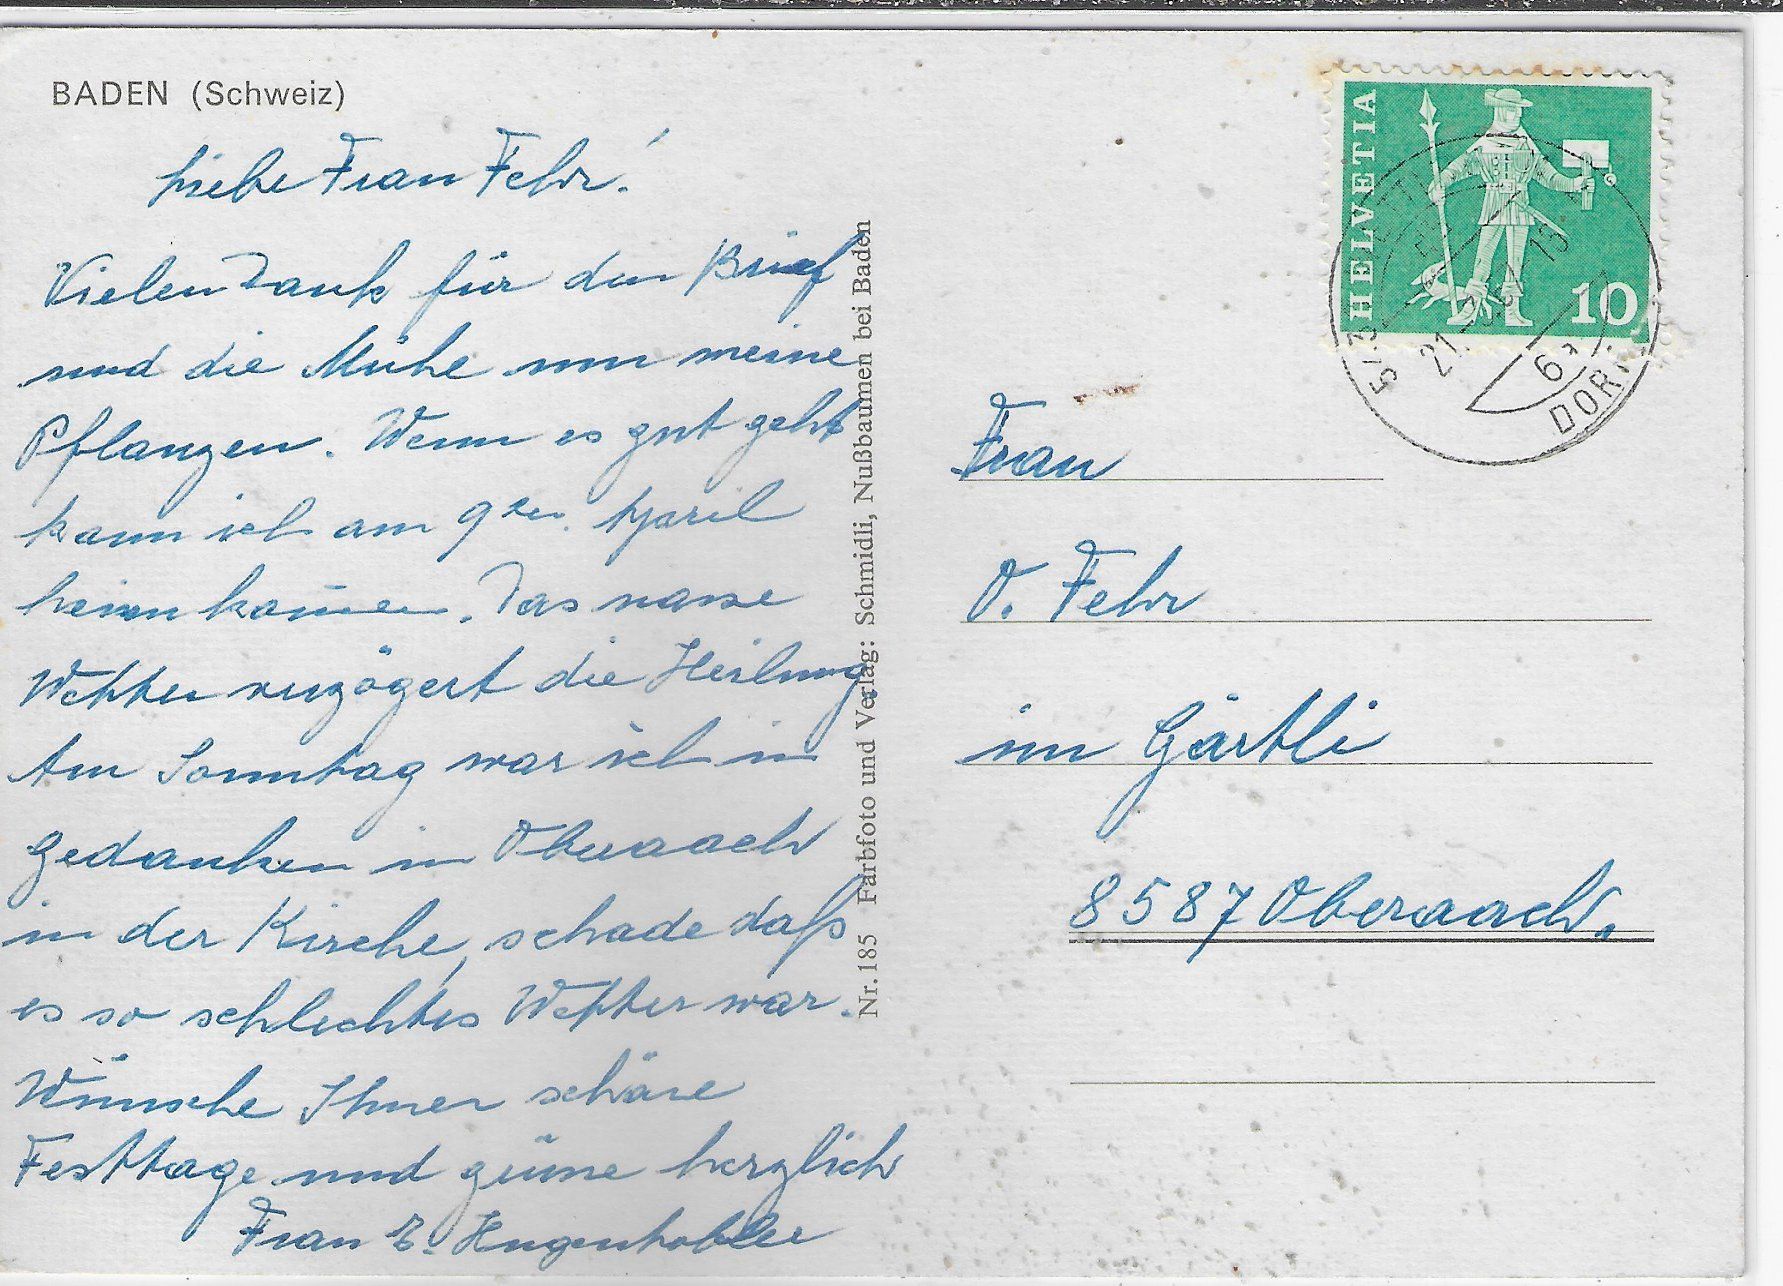 BADEN (Schweiz)
Liebe Frau Fehr!
Vielen Dank für den Brief
und die Mühe um meine
Pflanzen. Wenn es gut geht
kann ich am 9ten. April
heim kom̄en. Das nasse
Wetter verzögert die Heilung
Am Sonntag war ich in
Gedanken in Oberaach
in der Kirche, schade daß
es so schlechtes Wetter war.
Wünsche Ihnen schöne
Festtage und grüsse herzlich
Frau E. Hugentobler
Nr. 185 Farbfoto und Verlag: Schmidli, Nußbaumen bei Baden
HELVETIA
10
21.
DOR
Frau
O. Fehr
im Gärtli
8587 Oberaach.